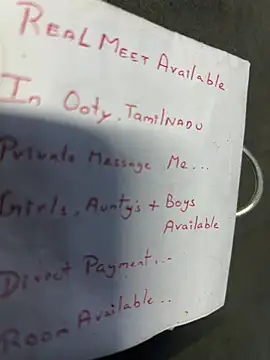 REAL MEET Available
In Ooty, TamilNADU
Private Message Me...
Girls, Aunty's + Boys
Available
Direct Payment...
Room Available..